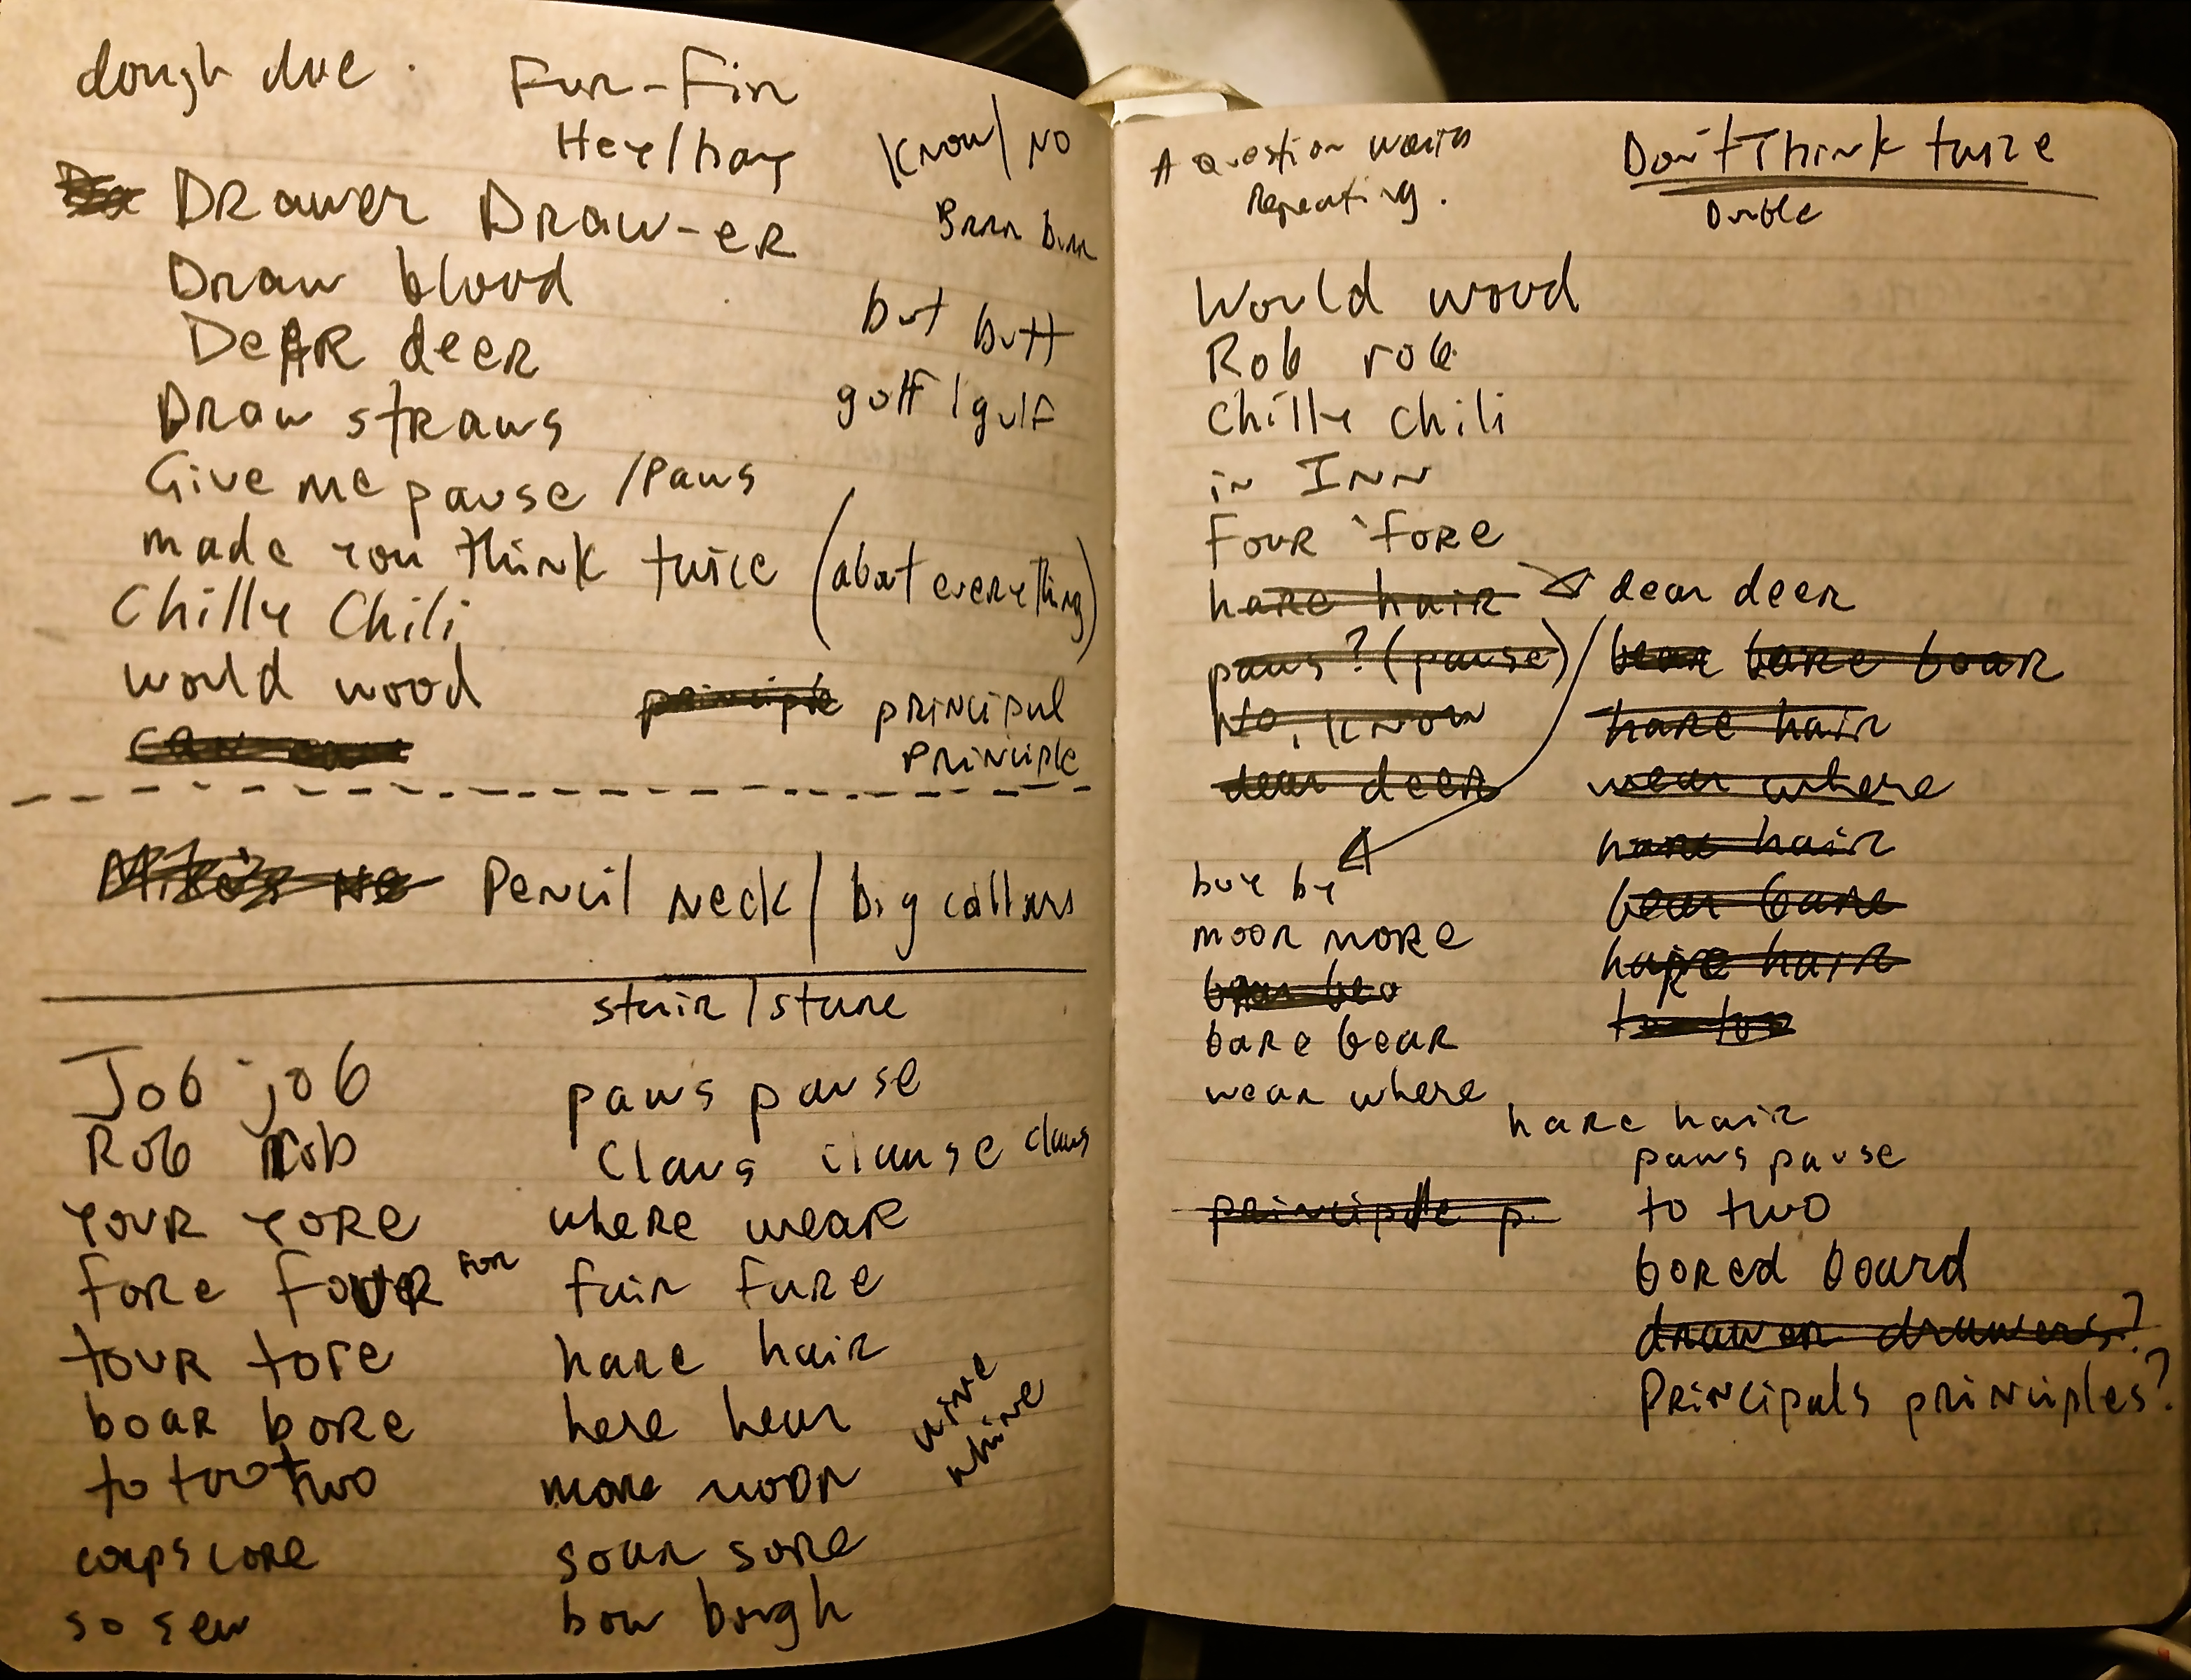 dough doe.
Fur-Fir
Hey/hay
Know/No
Drawer Draw-er
Brrr burr
Draw blood
Dear deer
but butt
Draw straws
golf/gulf
Give me pause/paws
made you think twice (about everything)
Chilly Chili
would wood
principle principal
principle
Pencil neck/big collars
stair/stare
Job job
Rob rob
your yore
fore four for
tour tore
boar bore
to too two
corps core
so sew
paws pause
Claus clause claws
where wear
fair fare
hare hair
here hear
wine
whine
more moor
soar sore
bow bough
A question worth
Repeating.
Don't Think twice
Double
Would wood
Rob rob
Chilly Chili
in Inn
Four 'fore
hare hair
paws? (pause)
No, Know
dear deer
buy by
moor more
bare bear
wear where
dear deer
bear bare boar
hare hair
wear where
hare hair
bear bare
hare hair
hare hair
paws pause
principle p.
to two
bored board
drawer drawers?
Principals principles?